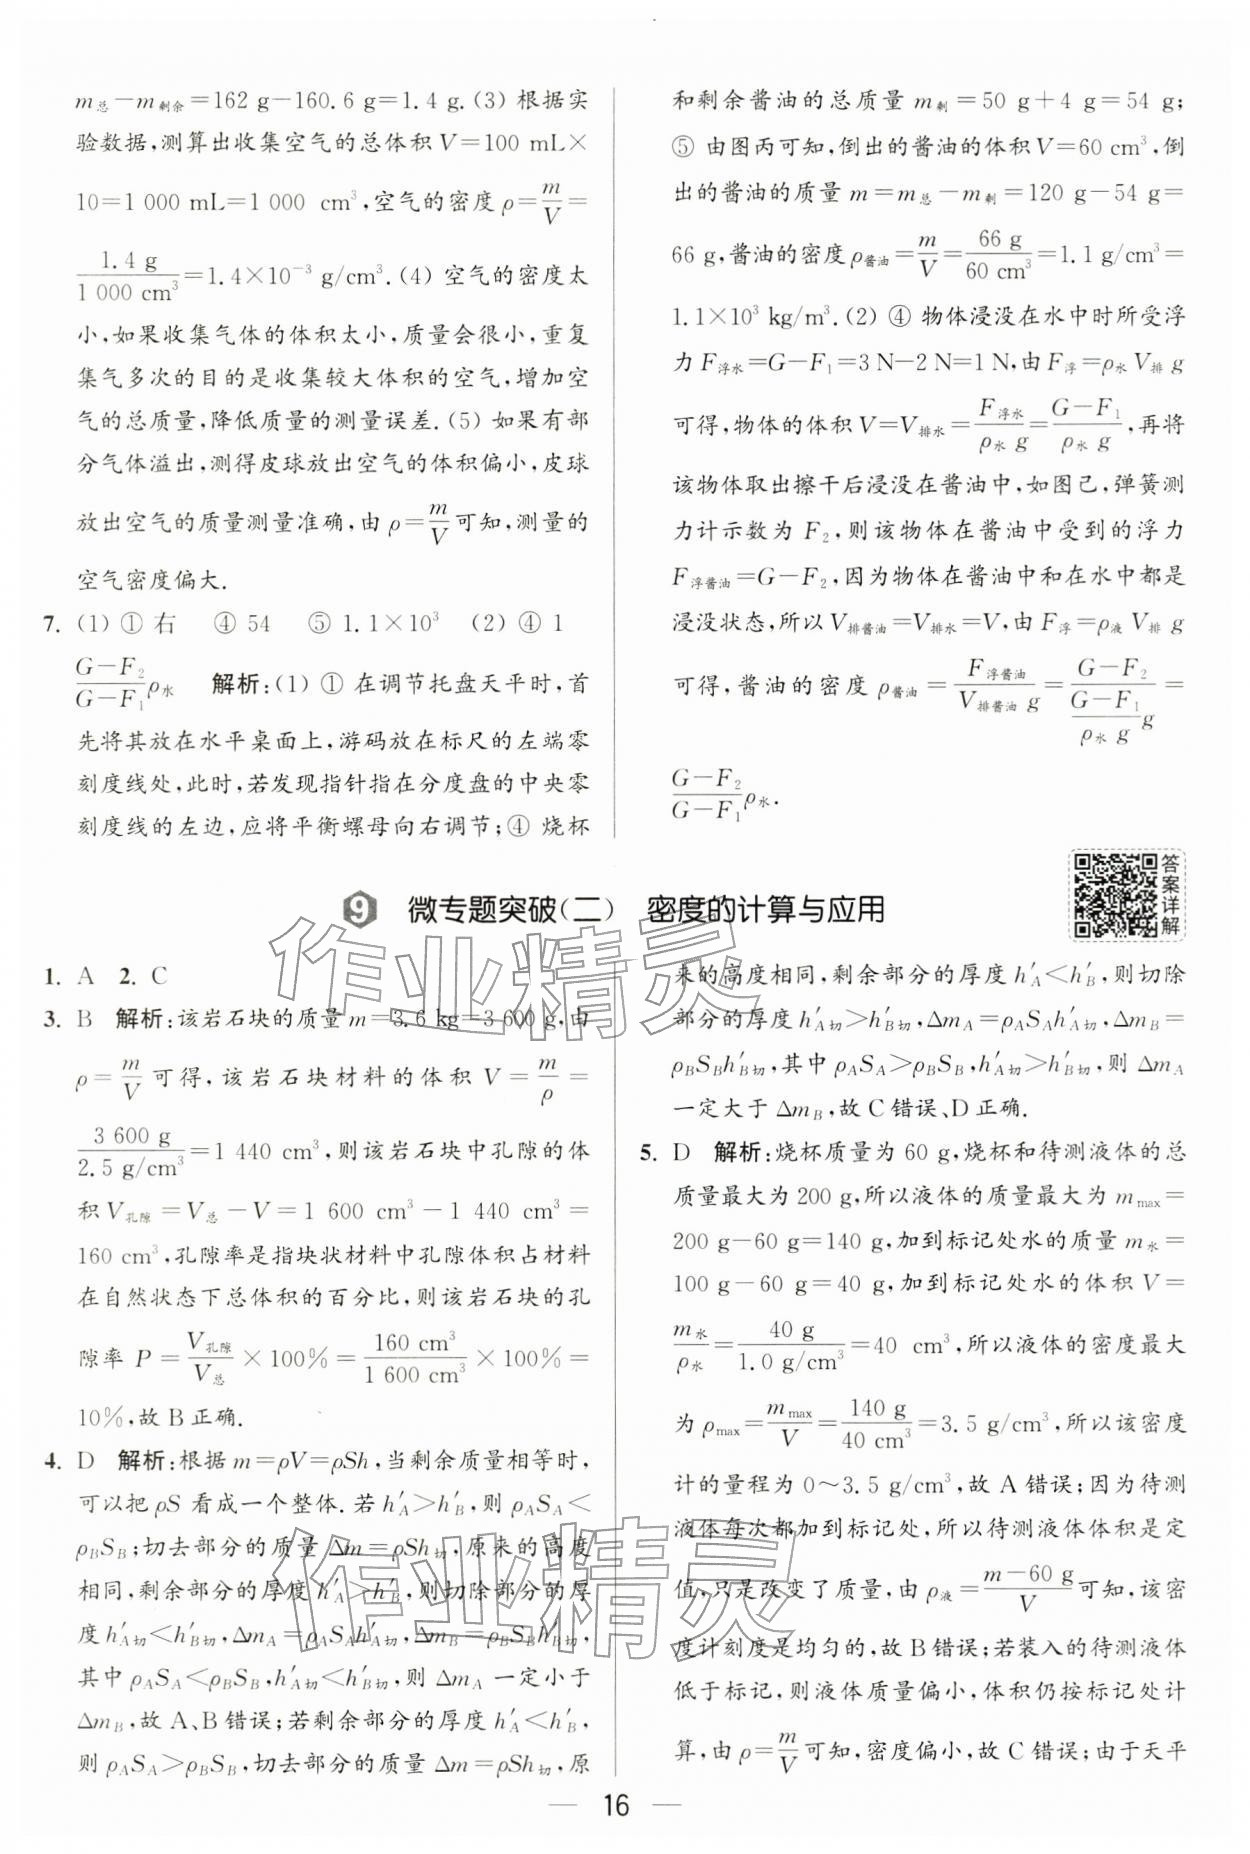 m总－m剩余＝162 g－160.6 g＝1.4 g.(3) 根据实
验数据,测算出收集空气的总体积 V＝100 mL×
10＝1 000 mL＝1 000 cm³,空气的密度 ρ＝m/V＝
1.4 g/1 000 cm³＝1.4×10⁻³ g/cm³.(4) 空气的密度太
小,如果收集气体的体积太小,质量会很小,重复
集气多次的目的是收集较大体积的空气,增加空
气的总质量,降低质量的测量误差.(5) 如果有部
分气体溢出,测得皮球放出空气的体积偏小,皮球
放出空气的质量测量准确,由 ρ＝m/V 可知,测量的
空气密度偏大.
7. (1) ① 右 ④ 54 ⑤ 1.1×10³ (2) ④ 1
(G－F₂)/(G－F₁)ρ水 解析:(1) ① 在调节托盘天平时,首
先将其放在水平桌面上,游码放在标尺的左端零
刻度线处,此时,若发现指针指在分度盘的中央零
刻度线的左边,应将平衡螺母向右调节;④ 烧杯
和剩余酱油的总质量 m剩＝50 g＋4 g＝54 g;
⑤ 由图丙可知,倒出的酱油的体积 V＝60 cm³,倒
出的酱油的质量 m＝m总－m剩＝120 g－54 g＝
66 g,酱油的密度 ρ酱油＝m/V＝66 g/60 cm³＝1.1 g/cm³＝
1.1×10³ kg/m³.(2) ④ 物体浸没在水中时所受浮
力 F浮水＝G－F₁＝3 N－2 N＝1 N,由 F浮＝ρ水 V排 g
可得,物体的体积 V＝V排水＝F浮水/(ρ水 g)＝(G－F₁)/(ρ水 g),再将
该物体取出擦干后浸没在酱油中,如图己,弹簧测
力计示数为 F₂,则该物体在酱油中受到的浮力
F浮酱油＝G－F₂,因为物体在酱油中和在水中都是
浸没状态,所以 V排酱油＝V排水＝V,由 F浮＝ρ液 V排 g
可得,酱油的密度 ρ酱油＝F浮酱油/(V排酱油 g)＝(G－F₂)/((G－F₁)/(ρ水 g) g)＝
(G－F₂)/(G－F₁)ρ水.
9 微专题突破(二) 密度的计算与应用
答案详解
1. A 2. C
3. B 解析:该岩石块的质量 m＝3.6 kg＝3 600 g,由
ρ＝m/V 可得,该岩石块材料的体积 V＝m/ρ＝
3 600 g/2.5 g/cm³＝1 440 cm³,则该岩石块中孔隙的体
积 V孔隙＝V总－V＝1 600 cm³－1 440 cm³＝
160 cm³,孔隙率是指块状材料中孔隙体积占材料
在自然状态下总体积的百分比,则该岩石块的孔
隙率 P＝V孔隙/V总×100％＝160 cm³/1 600 cm³×100％＝
10％,故 B 正确.
4. D 解析:根据 m＝ρV＝ρSh,当剩余质量相等时,
可以把 ρS 看成一个整体.若 h′A＞h′B,则 ρASA＜
ρBSB;切去部分的质量 Δm＝ρSh切,原来的高度
相同,剩余部分的厚度 h′A＞h′B,则切除部分的厚
度 h′A切＜h′B切,ΔmA＝ρASAh′A切,ΔmB＝ρBSBh′B切,
其中 ρASA＜ρBSB,h′A切＜h′B切,则 ΔmA 一定小于
ΔmB,故 A、B 错误;若剩余部分的厚度 h′A＜h′B,
则 ρASA＞ρBSB,切去部分的质量 Δm＝ρSh切,原
来的高度相同,剩余部分的厚度 h′A＜h′B,则切除
部分的厚度 h′A切＞h′B切,ΔmA＝ρASAh′A切,ΔmB＝
ρBSBh′B切,其中 ρASA＞ρBSB,h′A切＞h′B切,则 ΔmA
一定大于 ΔmB,故 C 错误、D 正确.
5. D 解析:烧杯质量为 60 g,烧杯和待测液体的总
质量最大为 200 g,所以液体的质量最大为 mmax＝
200 g－60 g＝140 g,加到标记处水的质量 m水＝
100 g－60 g＝40 g,加到标记处水的体积 V＝
m水/ρ水＝40 g/1.0 g/cm³＝40 cm³,所以液体的密度最大
为 ρmax＝mmax/V＝140 g/40 cm³＝3.5 g/cm³,所以该密度
计的量程为 0～3.5 g/cm³,故 A 错误;因为待测
液体每次都加到标记处,所以待测液体体积是定
值,只是改变了质量,由 ρ液＝(m－60 g)/V 可知,该密
度计刻度是均匀的,故 B 错误;若装入的待测液体
低于标记,则液体质量偏小,体积仍按标记处计
算,由 ρ＝m/V 可知,密度偏小,故 C 错误;由于天平
16
作业精灵
作业精灵